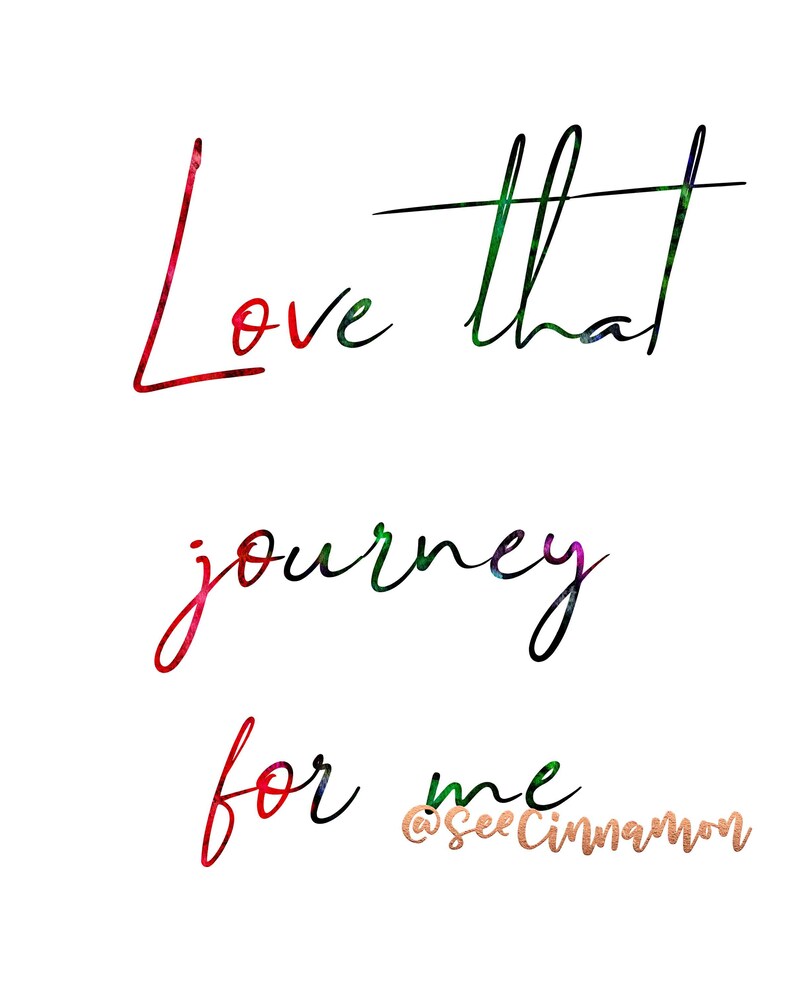 Love that
journey
for me
@SeeCinnamon